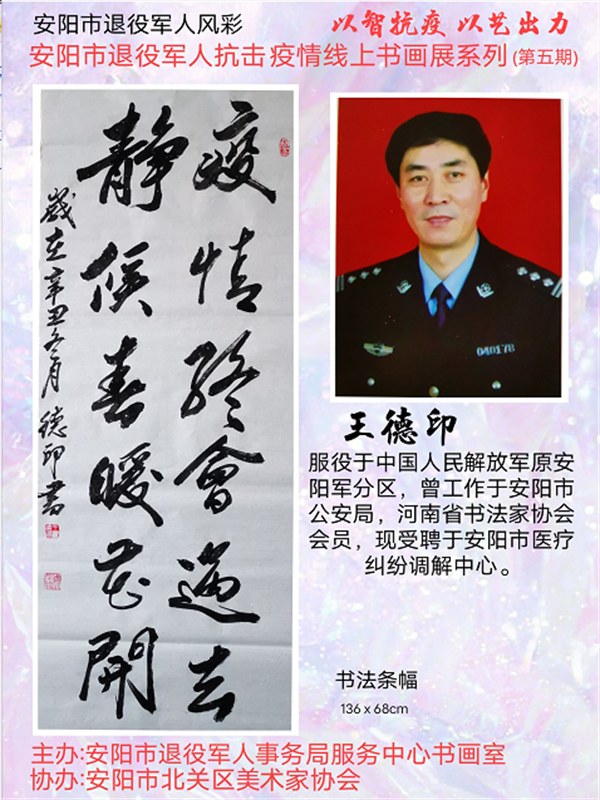 安阳市退役军人风彩
以智抗疫 以艺出力
安阳市退役军人抗击疫情线上书画展系列(第五期)
疫情終會過去
静候春暖花開
歲在辛丑冬月 德印書
040178
王德印
服役于中国人民解放军原安
阳军分区，曾工作于安阳市
公安局，河南省书法家协会
会员，现受聘于安阳市医疗
纠纷调解中心。
书法条幅
136 x 68cm
主办:安阳市退役军人事务局服务中心书画室
协办:安阳市北关区美术家协会